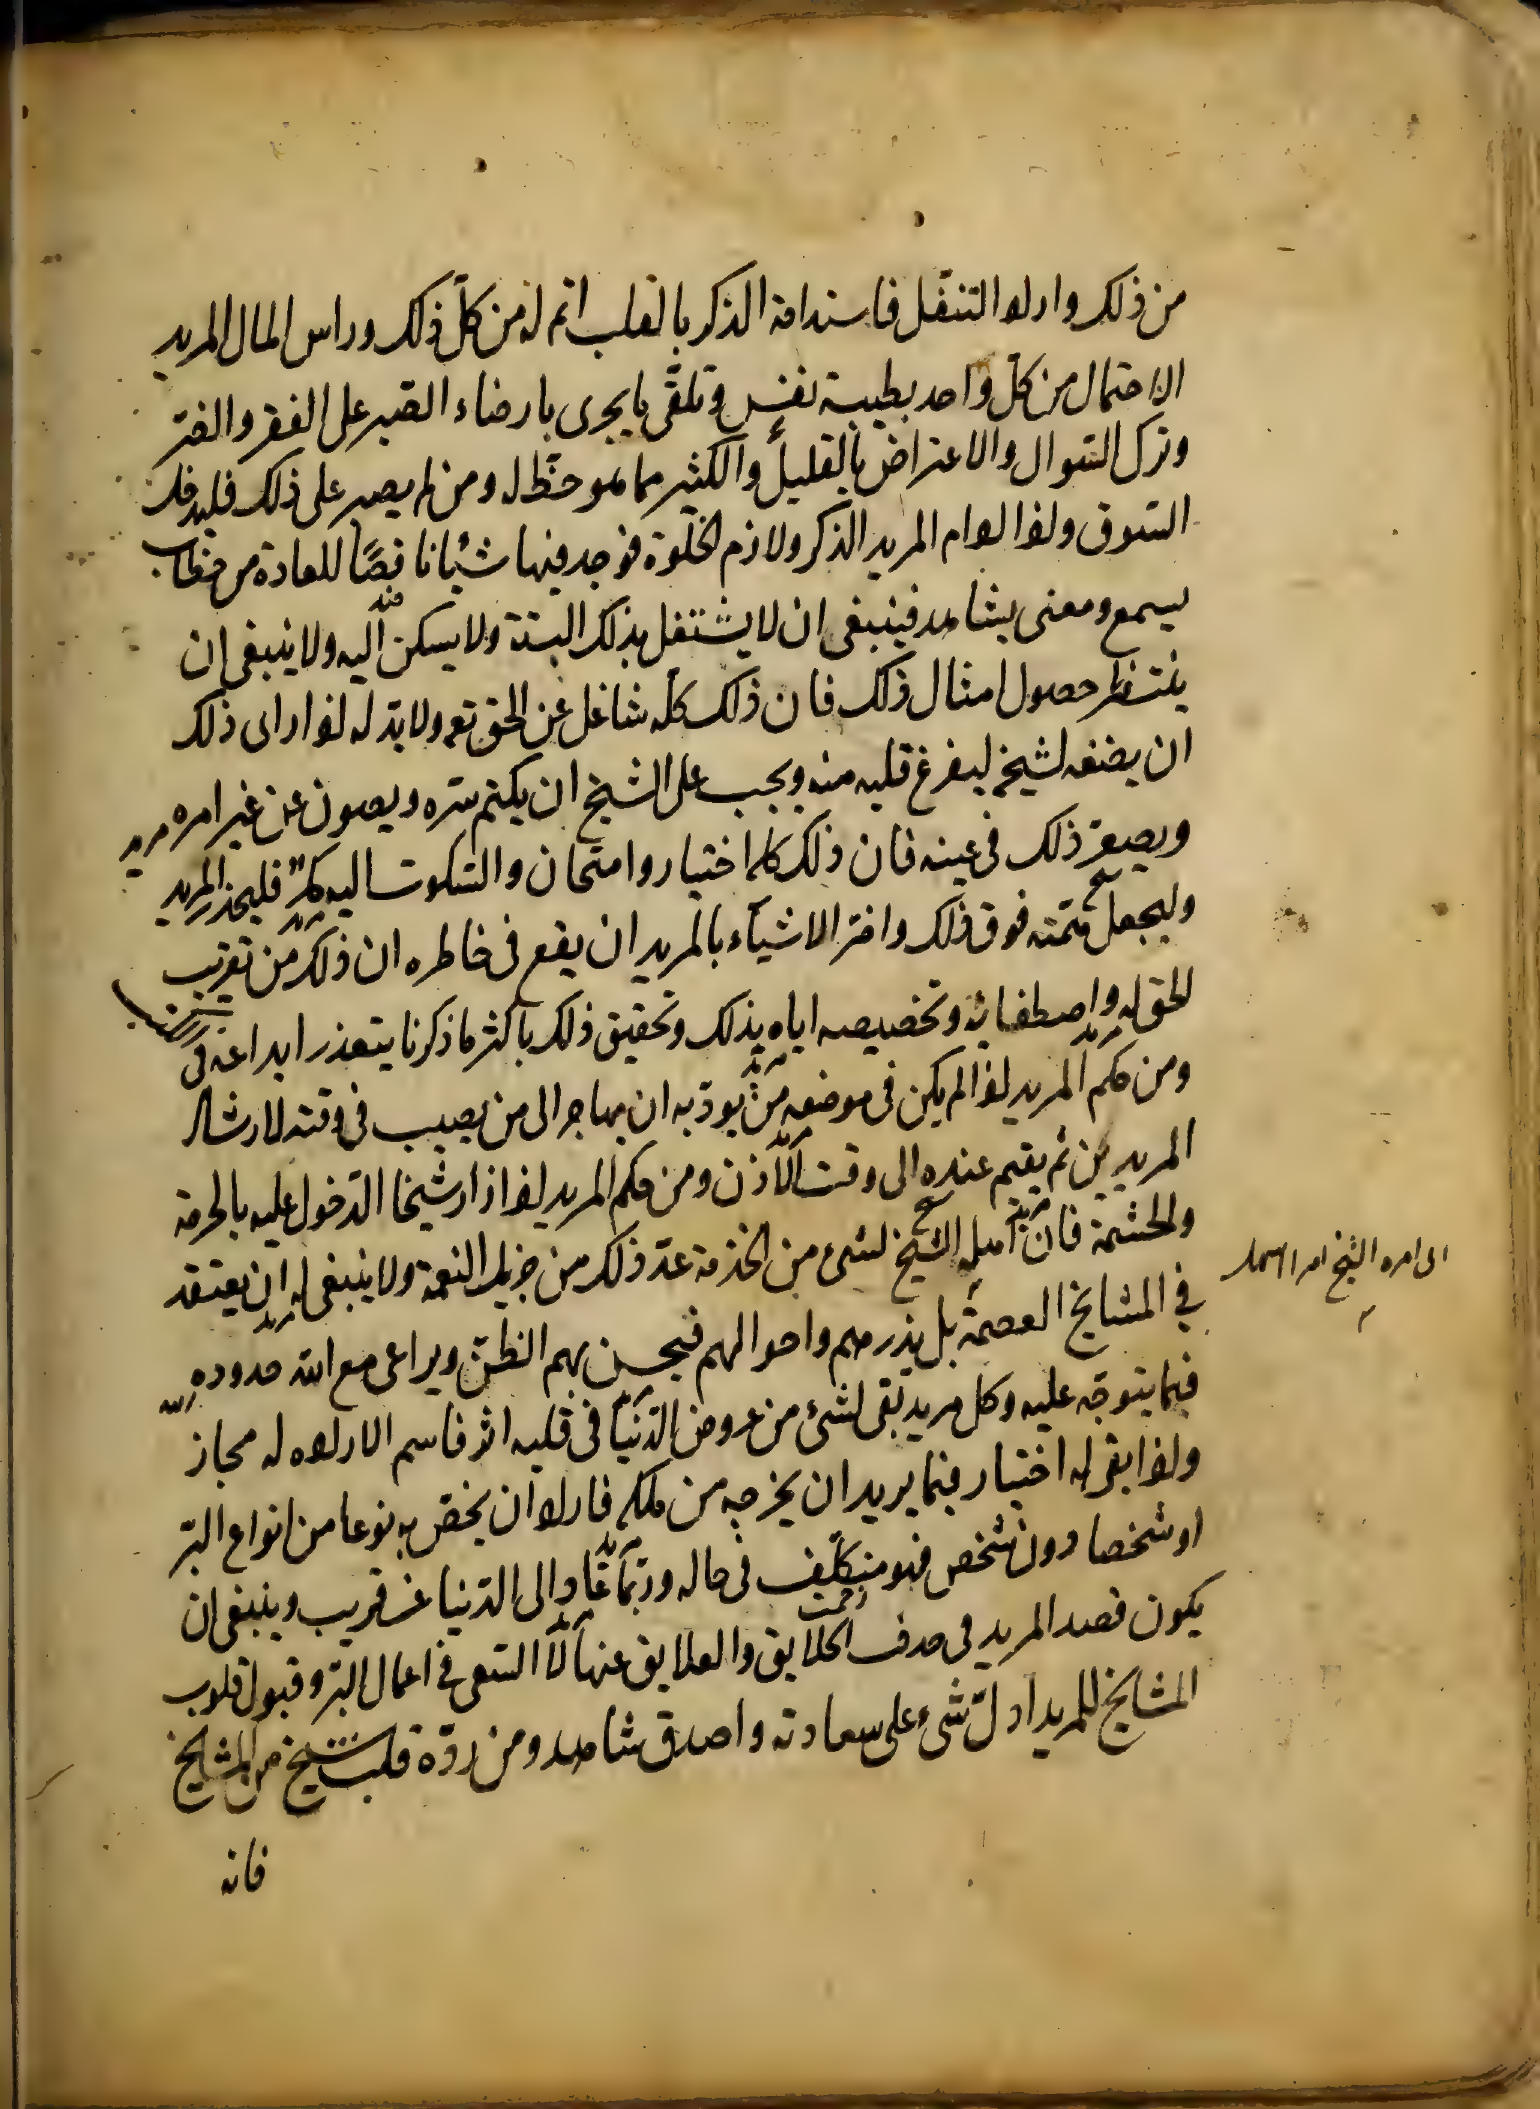 من ذلك واراد التنفل فاستدامة الذكر بالقلب اتم له من كل ذلك وراس المال المريد
الاحتمال من كل واحد بطيبة نفس وتلقى ما يجرى بارضاء الصبر على الفقر والضر
وترك السوال والاعتراض بالقليل والكثير مما هو حظ له ومن لم يصبر على ذلك فليدخل
السوق واذا ادام المريد الذكر ولازم الخلوة فوجد فيها شيئا ناقصًا للعادة من خطاب
يسمع ومعنى يشاهد فينبغى ان لا يشتغل بذلك البتة ولا يسكن اليه ولا ينبغى ان
ينتظر حصول امثال ذلك فان ذلك كله شاغل عن الحق تع ولا بد له اذا راى ذلك
ان يصفه لشيخه ليفرغ قلبه منه ويجب على الشيخ ان يكتم سره ويصون عن غير امره
ويصغر ذلك فى عينه فان ذلك كله اختبار وامتحان والسكوت اليه مكر فليحذر المريد
وليجعل همته فوق ذلك واضر الاشياء بالمريد ان يقع فى خاطره ان ذلك من تقريب
الحق له واصطفائه وتخصيصه اياه بذلك وتحقيق ذلك باكثر ما ذكرنا يتعذر ابداعه فى
ومن حكم المريد اذا لم يكن فى موضعه من يودبه ان يهاجر الى من يصيب فى وقته لارشاد
المريدين ثم يقيم عنده الى وقت الاذن ومن حكم المريد اذا زار شيخا الدخول عليه بالحرمة
والحشمة فان اهله الشيخ لشئ من الخدمة عد ذلك من جزيل النعمة ولا ينبغى له ان يعتقد
الى امره الشيخ
فى المشايخ العصمة بل يذرهم واحوالهم فيحسن بهم الظن ويراعى مع الله حدوده
فيما يتوجه عليه وكل مريد بقى لشئ من عروض الدنيا فى قلبه اثر فاسم الارادة له مجاز
واذا بقى له اختيار فيما يريد ان يخرجه من ملكه فاراد ان يخص به نوعا من انواع البر
او شخصا دون شخص فهو متكلف فى حاله وربما عاد الى الدنيا عن قريب وينبغى ان
يكون قصد المريد فى حذف الخلايق والعلايق عنها لا السعى فى اعمال البر وقبول قلوب
المشايخ للمريد ادل شئ على سعادته واصدق شاهد ومن رده قلب شيخ من المشايخ
فانه